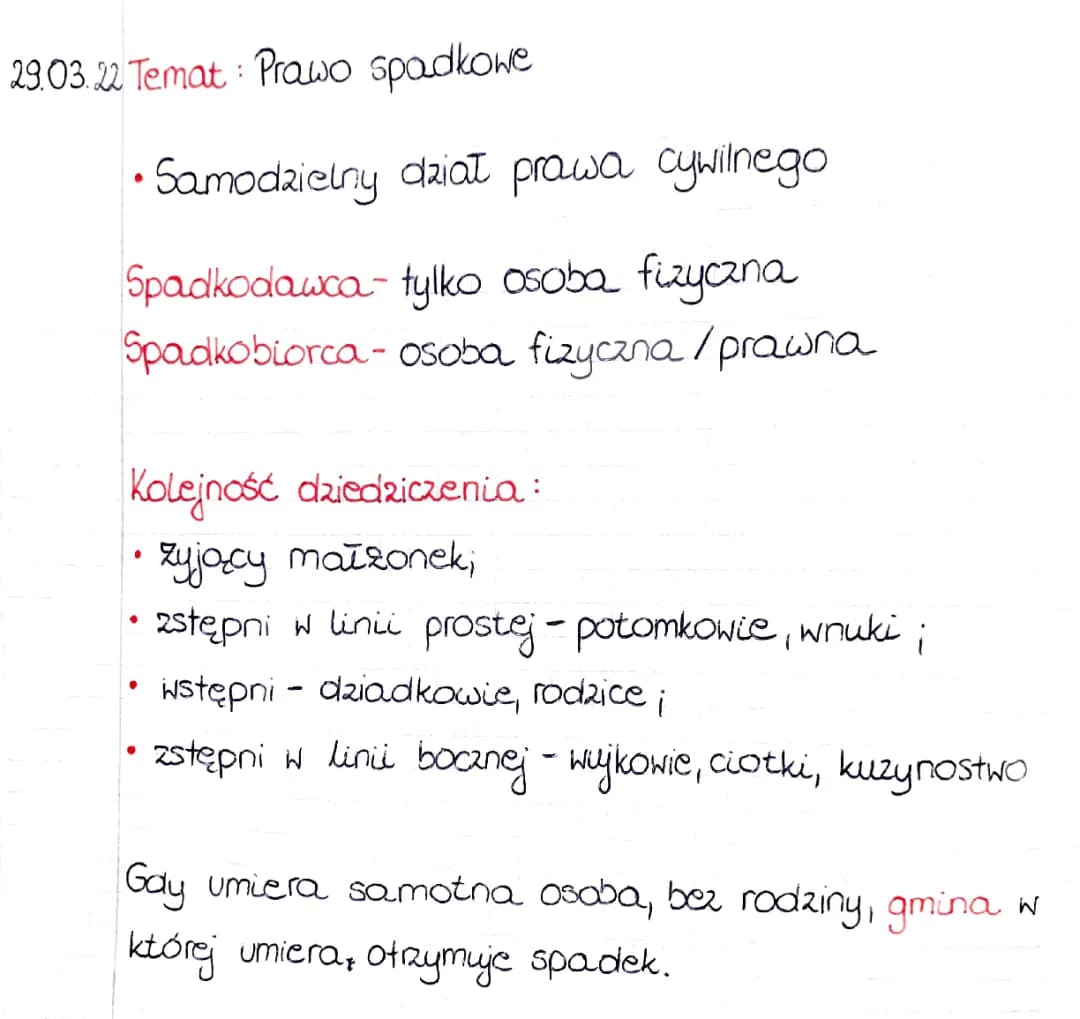 29.03.22 Temat: Prawo spadkowe
• Samodzielny dział prawa cywilnego
Spadkodawca - tylko osoba fizyczna
Spadkobiorca - osoba fizyczna / prawna
Kolejność dziedziczenia:
• żyjący małżonek;
• zstępni w linii prostej - potomkowie, wnuki;
• wstępni - dziadkowie, rodzice;
• zstępni w linii bocznej - wujkowie, ciotki, kuzynostwo
Gdy umiera samotna osoba, bez rodziny, gmina w
której umiera, otrzymuje spadek.